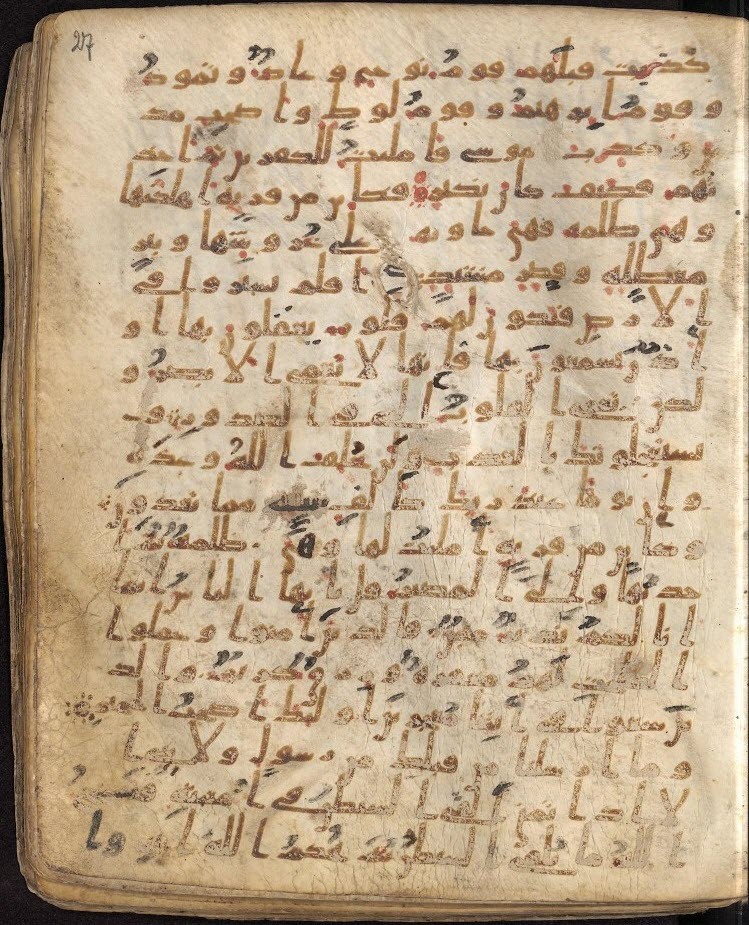 27
كذبت قبلهم قوم نوح وعاد وثمود
وقوم ابرهيم وقوم لوط واصحب مد
ين وكذب موسى فامليت للكفرين ثم اخذ
تهم فكيف كان نكير فكاين من قرية اهلكنها
وهي ظلمة فهي خاوية على عروشها وبير
معطلة وقصر مشيد افلم يسيروا في
الارض فتكون لهم قلوب يعقلون بها او
اذان يسمعون بها فانها لا تعمى الابصر و
لكن تعمى القلوب التي في الصدور و
يستعجلونك بالعذاب ولن يخلف الله وعده
وان يوما عند ربك كالف سنة مما تعدون
وكاين من قرية امليت لها وهي ظلمة ثم ا
خذتها والي المصير قل يايها الناس انما
انا لكم نذير مبين فالذين امنوا وعملوا
الصلحت لهم مغفرة ورزق كريم والذ
ين سعوا في ايتنا معجزين اوليك اصحب الجحيم
وما ارسلنا من قبلك من رسول ولا نبي ا
لا اذا تمنى القى الشيطن في امنيته فينسخ
الله ما يلقي الشيطن ثم يحكم الله ايته وا